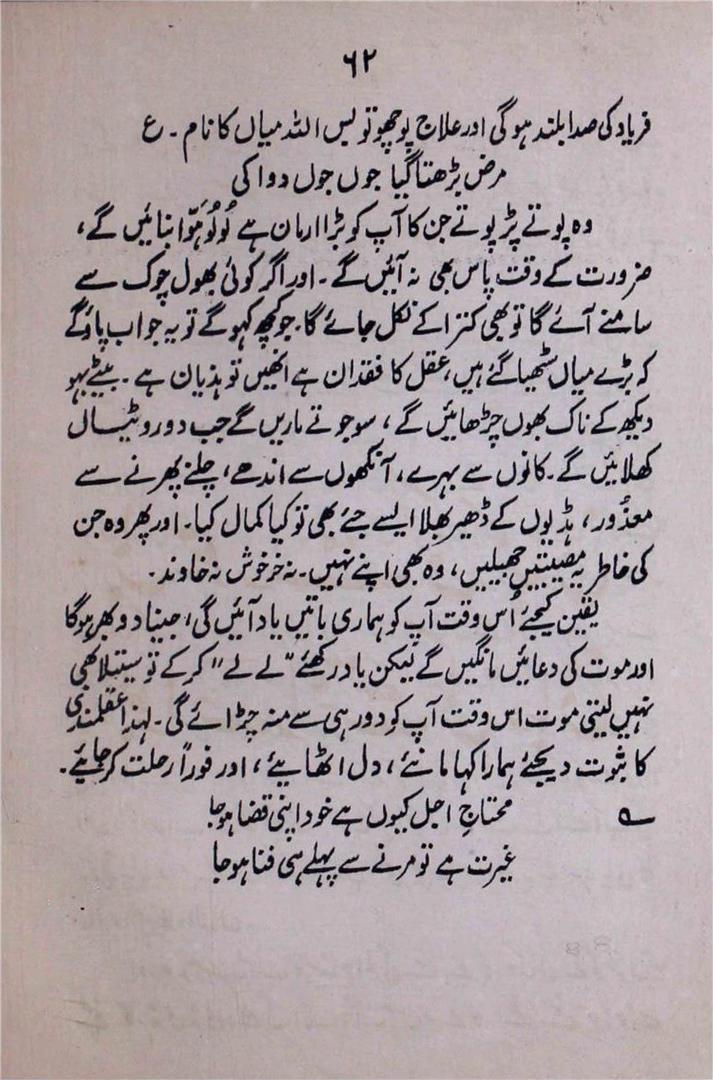 ۶۲
فریاد کی صدا بلند ہوگی اور علاج پوچھو تو بس اللہ میاں کا نام ۔ ع
مرض بڑھتا گیا جوں جوں دوا کی
وہ پوتے پڑپوتے جن کا آپ کو بڑا ارمان ہے لُولُو ہَوّا بنائیں گے،
ضرورت کے وقت پاس بھی نہ آئیں گے ۔ اور اگر کوئی بھول چوک سے
سامنے آئے گا تو بھی کترا کے نکل جائے گا۔ جو کچھ کہو گے تو یہ جواب پاؤ گے
کہ بڑے میاں سٹھیا گئے ہیں، عقل کا فقدان ہے انھیں تو ہذیان ہے ۔ بیٹے بہو
دیکھ کے ناک بھوں چڑھائیں گے، سو جوتے ماریں گے جب دو روٹیاں
کھلائیں گے ۔ کانوں سے بہرے، آنکھوں سے اندھے، چلنے پھرنے سے
معذور، ہڈیوں کے ڈھیر بھلا ایسے جئے بھی تو کیا کمال کیا۔ اور پھر وہ جن
کی خاطر یہ مصیبتیں جھیلیں، وہ بھی اپنے نہیں ۔ نہ خر خوش نہ خاوند ۔
یقین کیجئے اُس وقت آپ کو ہماری باتیں یاد آئیں گی، جینا دوبھر ہوگا
اور موت کی دعائیں مانگیں گے لیکن یاد رکھئے "لے لے" کر کے تو سیتلا بھی
نہیں لیتی موت اس وقت آپ کو دور ہی سے منہ چڑائے گی ۔ لہٰذا عقلمندی
کا ثبوت دیجئے ہمارا کہا مانئے، دل اٹھایئے، اور فوراً رحلت کر جایئے ۔
؎ محتاجِ اجل کیوں ہے خود اپنی قضا ہو جا
غیرت ہے تو مرنے سے پہلے ہی فنا ہو جا